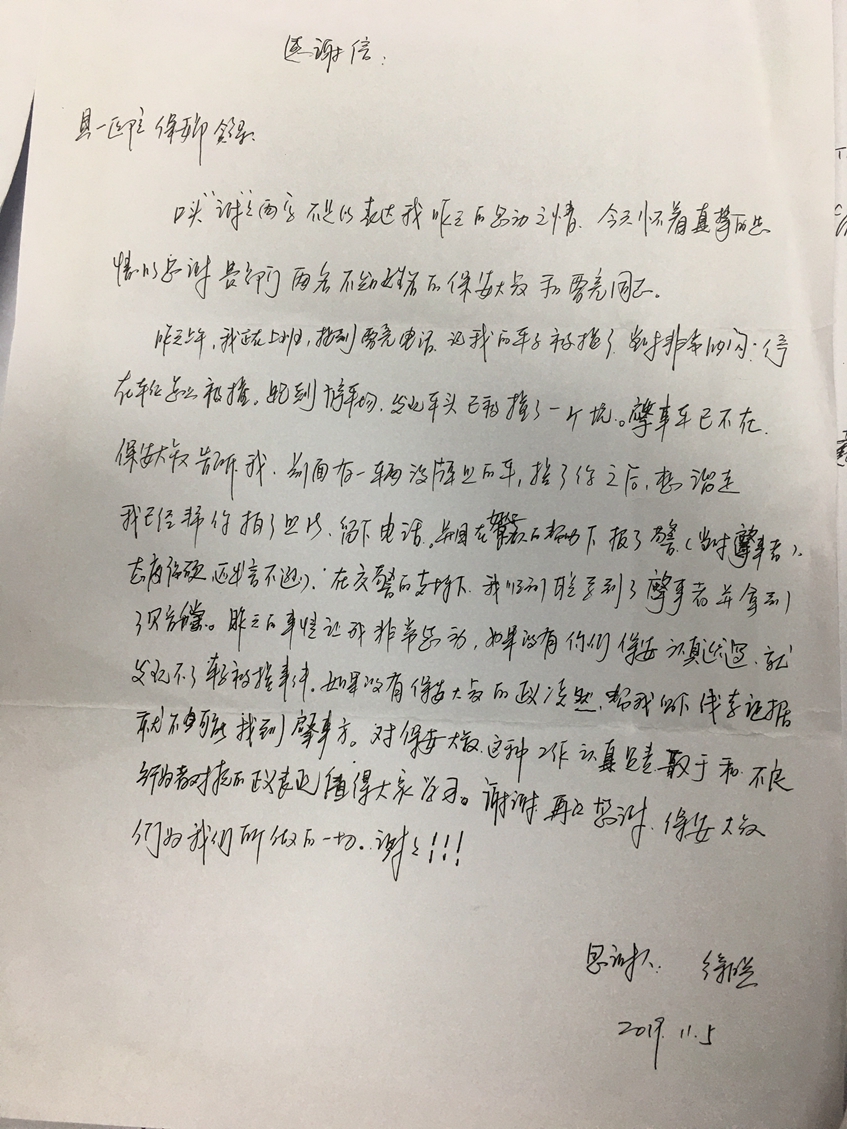 感谢信:
县一医院保安部 领导:
口头"谢谢"两字不足以表达我昨天的感动之情.今天怀着真挚的感
情以感谢贵部门两名不知姓名的保安大叔和雷亮同志。
昨天上午,我正在上班,接到雷亮电话.说我的车子被撞了.当时非常纳闷:停
在车位怎么被撞。跑到停车场,发现车头已被撞了一个坑。肇事车已不在.
保安大叔告诉我.前面有一辆没牌照的车,撞了你之后,想溜走
我已经帮你拍了照片.留下电话。并且在的帮助下报了警.(当时肇事者
态度强硬还出言不逊).在交警的支持下.我顺利联系到了肇事者并拿到
了赔偿。昨天的事情让我非常感动,如果没有你们保安认真巡逻.就
发现不了车子被撞事件。如果没有保安大叔的正义凛然.帮我留下线索证据
就不可能找到肇事方。对保安大叔这种工作认真负责敢于和不良
行为者对抗的正义表现值得大家学习。谢谢.再次感谢.保安大叔
们为我们所做的一切.谢谢!!!
感谢人:徐
2019.11.5